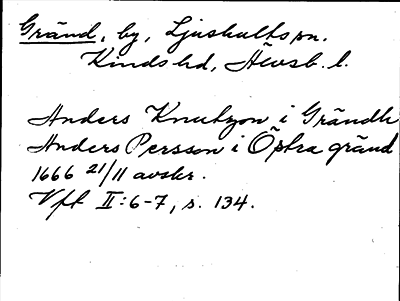 Gränd, by, Ljushults sn.
Kinds hd, Älvsb. l.
Anders Knutzon i Grändh
Anders Persson i Öfra gränd
1666 21/11 avskr.
Vft II:6-7, s. 134.